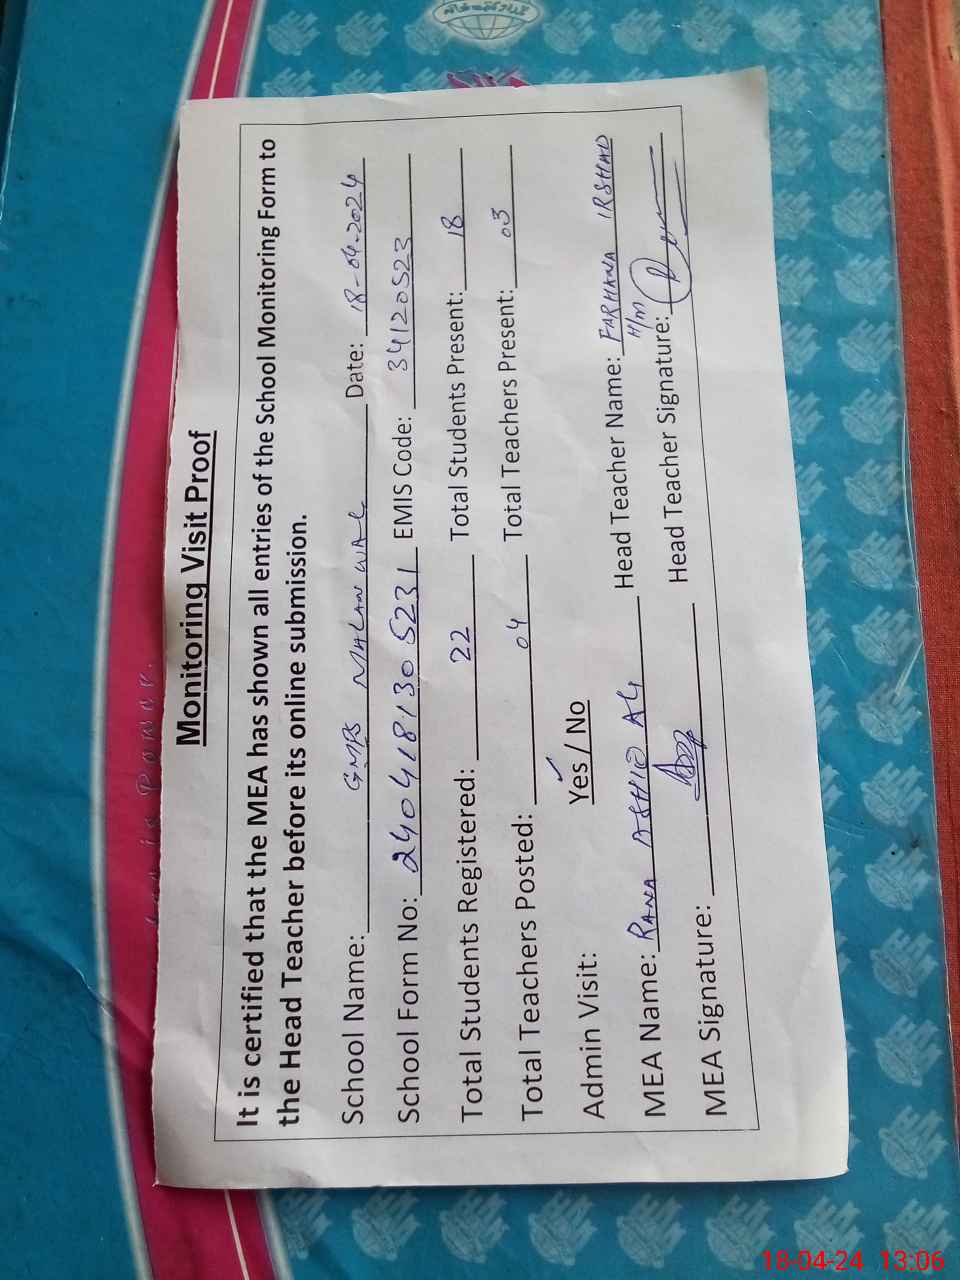 Monitoring Visit Proof
It is certified that the MEA has shown all entries of the School Monitoring Form to
the Head Teacher before its online submission.
School Name: GMPS MALAN WAL Date: 18-04-2024
School Form No: 240418130523 1 EMIS Code: 34120523
Total Students Registered: 22 Total Students Present: 18
Total Teachers Posted: 04 Total Teachers Present: 03
Admin Visit: Yes / No
MEA Name: RANA ASHIQ ALI Head Teacher Name: FARHANA IRSHAD
H/M
MEA Signature: Head Teacher Signature:
Power.
18-04-24 13:06